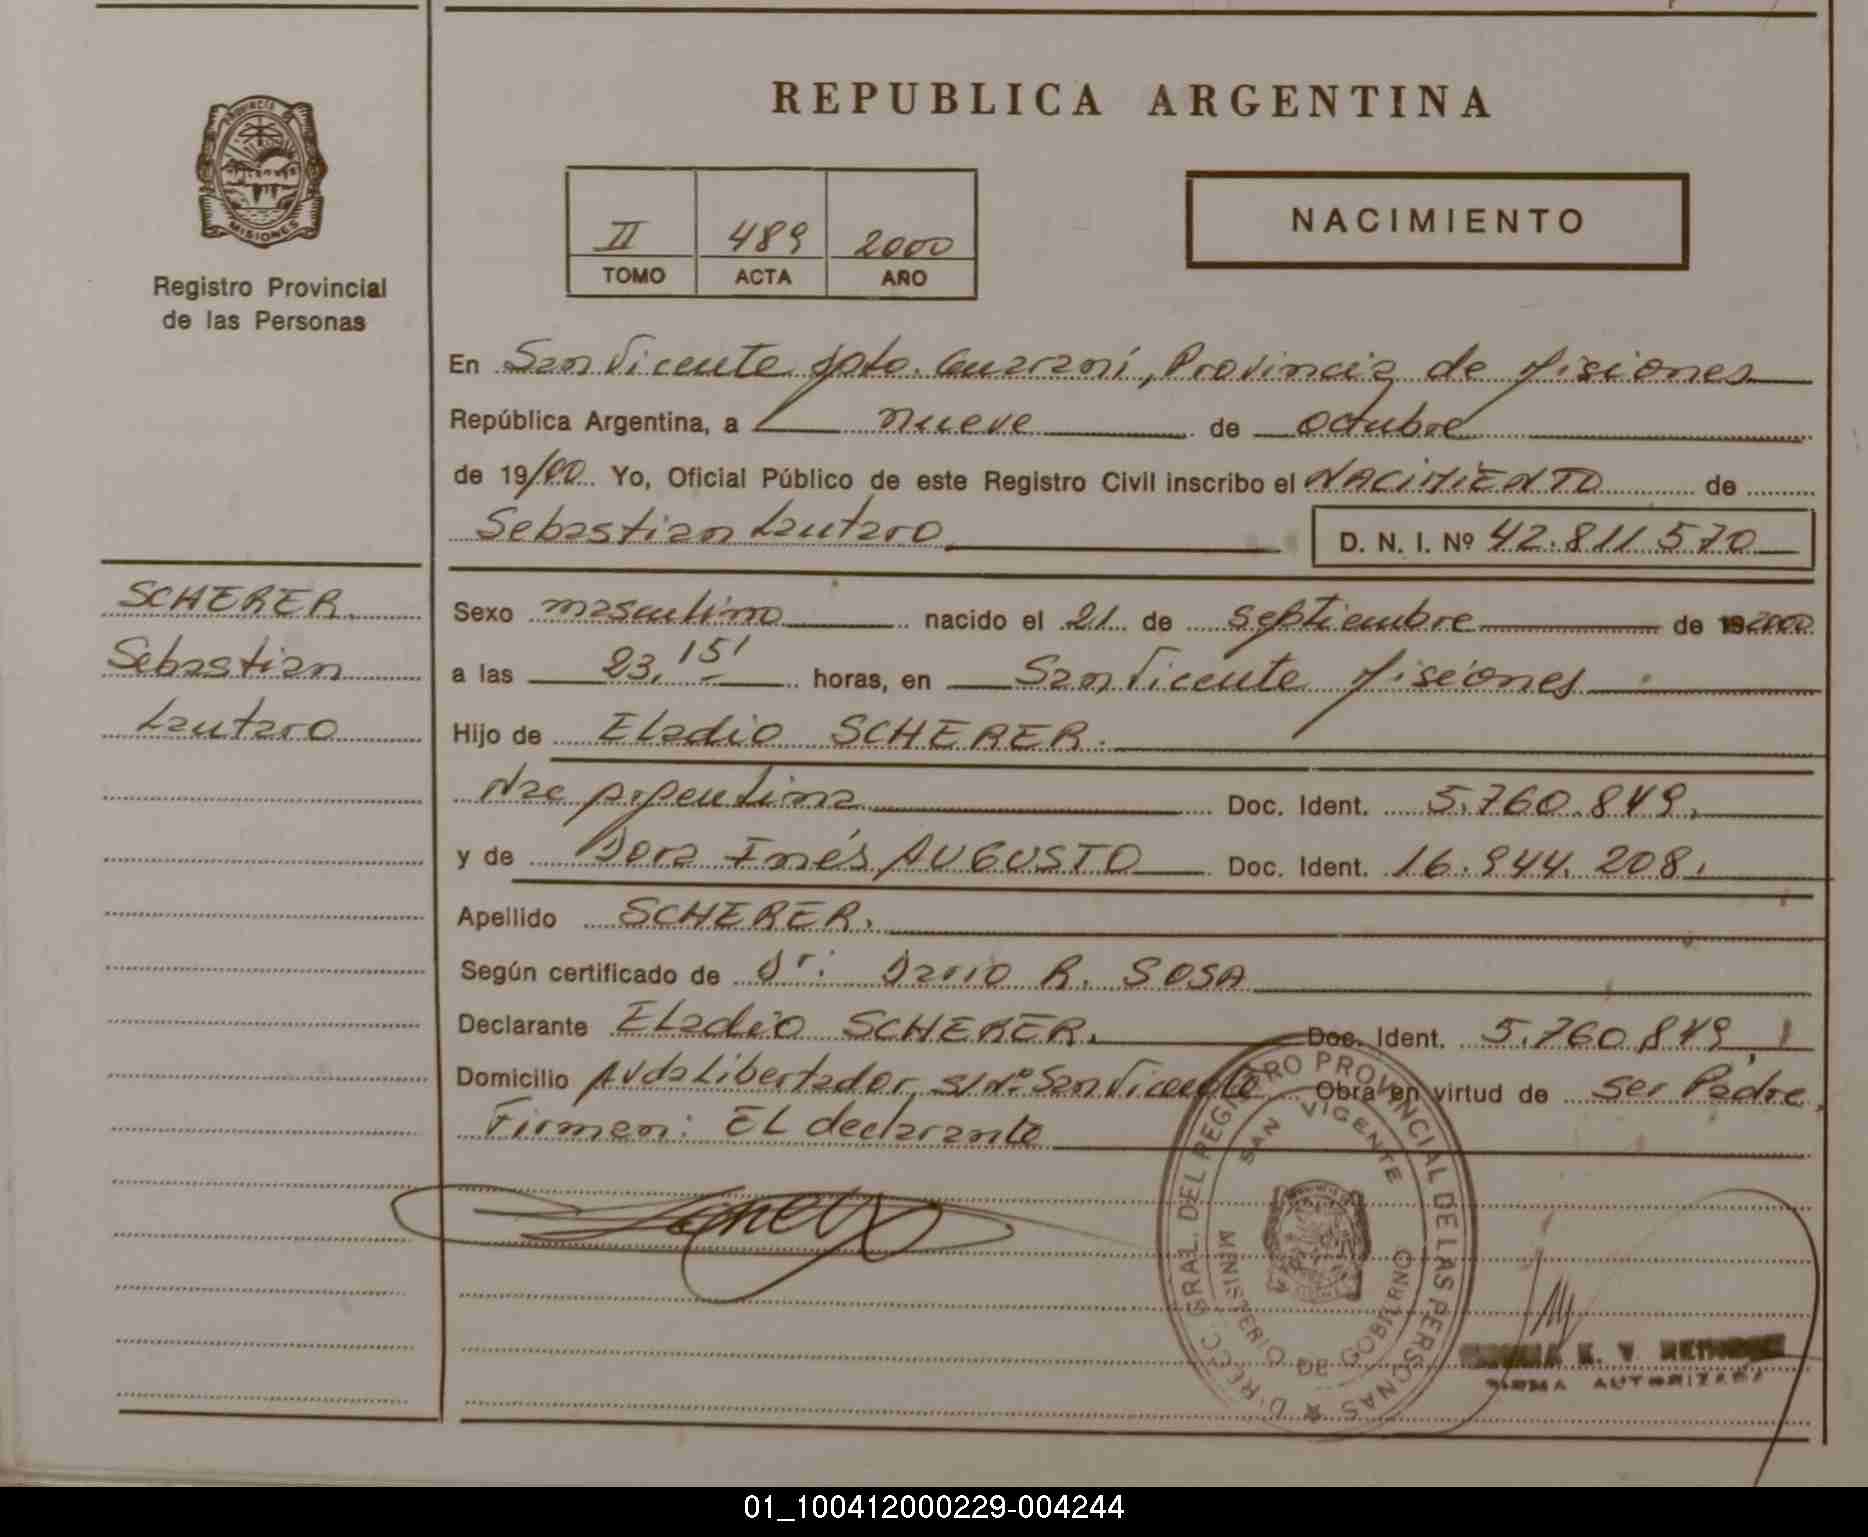 REPUBLICA ARGENTINA
PROVINCIA
MISIONES
Registro Provincial
de las Personas
II 489 2000
TOMO ACTA AÑO
NACIMIENTO
En San Vicente Dpto. Guaraní, Provincia de Misiones
República Argentina, a nueve de octubre
de 19/00. Yo, Oficial Público de este Registro Civil inscribo el NACIMIENTO de
Sebastian Lautaro D. N. I. Nº 42.811.570
SCHERER.
Sebastian
Lautaro
Sexo masculino nacido el 21 de septiembre de 2000
a las 23,15' horas, en San Vicente Misiones
Hijo de Eladio SCHERER.
Nac Argentina Doc. Ident. 5.760.849.
y de Dora Inés AUGUSTO Doc. Ident. 16.944.208.
Apellido SCHERER.
Según certificado de Dr: Dario R. SOSA
Declarante Eladio SCHERER. Doc. Ident. 5.760.849
Domicilio Avda Libertador s/nº San Vicente Obra en virtud de ser Padre.
Firman: El declarante
DIRECC. GRAL. DEL REGISTRO PROVINCIAL DE LAS PERSONAS
SAN VICENTE
MINISTERIO DE GOBIERNO
E. V.
FIRMA AUTORIZADA
01_100412000229-004244